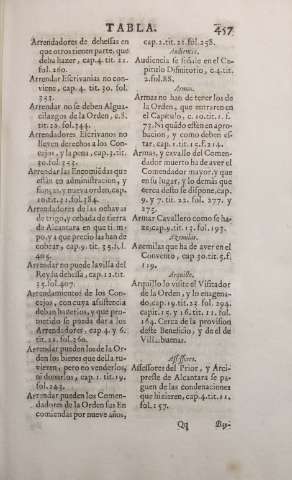 TABLA. 457
Arrendadores de dehessas en
que otros tienen parte, que
deba hazer, cap.4. tit. 21.
fol. 260.
Arrendar Escrivanias no con-
viene, cap. 4. tit. 30. fol.
353.
Arrendar no se deben Algua-
cilazgos de la Orden, c.8.
tit. 29. fol. 344.
Arrendadores Escrivanos no
lleven derechos a los Con-
cejos, y la pena, cap.3. tit.
30. fol. 353.
Arrendar las Encomiēdas que
están en administracion, y
fianças, y nueva orden, cap.
10. tit. 21. fol. 184.
Arrendadores de las ochavas
de trigo, y cebada de tierra
de Alcantara en que tiēm-
po, y a que precio las han de
cobrar, cap.9. tit. 35. f. l.
405.
Arrendar no puede la villa del
Rey su dehesa, cap. 12. tit.
35. fol. 407.
Arrendamientos de los Con-
cejos, con cuya assistencia
deban hazerlos, y que pro-
metido se pueda dar a los
Arrendadores, cap. 4. y 6.
tit. 21. fol. 260.
Arrendar pueden los de la Or-
den los bienes que della tu-
vieren, pero no venderlos,
ni donarlos, cap. 1. tit. 19.
fol. 243.
Arrendar pueden los Comen-
dadores de la Orden sus En
comiendas por nueve años,
cap. 2. tit. 21. fol. 258.
Audiencia.
Audiencia se señale en el Ca-
pitulo Difinitorio, c.4. tit.
2. fol. 88.
Armas.
Armas no han de tener los de
la Orden, que entraren en
el Capitulo, c. 10. tit. 1. f.
73. Ni quādo estén en apro-
bacion, y como deben es-
tar, cap. 1. tit. 12. f. 214.
Armas, y cavallo del Comen-
dador muerto ha de aver el
Comendador mayor, y que
en su lugar, y lo demàs que
cerca desto se dispone, cap.
9. y 7. tit. 22. fol. 277. y
275.
Armar Cavallero como se ha-
ze, cap. 4. tit. 13. fol. 197.
Azemilas.
Azemilas que ha de aver en el
Convento, cap 30. tit. 5. f.
119.
Arquillo.
Arquillo lo visite el Visitador
de la Orden, y lo enagena-
do, cap. 19. tit. 23. fol. 294.
capit. 15. y 16. tit. 11. fol.
164. Cerca de la provision
deste Beneficio, y dē el de
Villabuenas.
Assessores.
Assessores del Prior, y Arci-
preste de Alcantara se pa-
guen de las condenaciones
que hizieren, cap.4. tit. 11.
fol. 157.
Qq Bay-